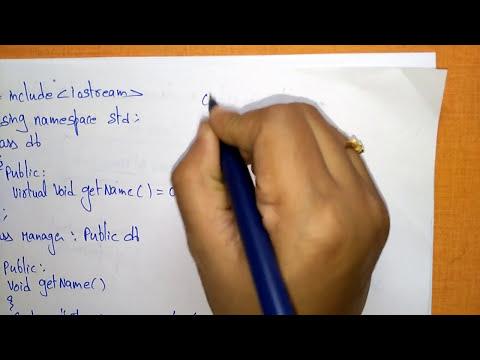 include <iostream>
sing namespace std;
ass db
{
Public:
Virtual Void getName() =
;
ass Manager : Public db
Public:
Void getName()
{